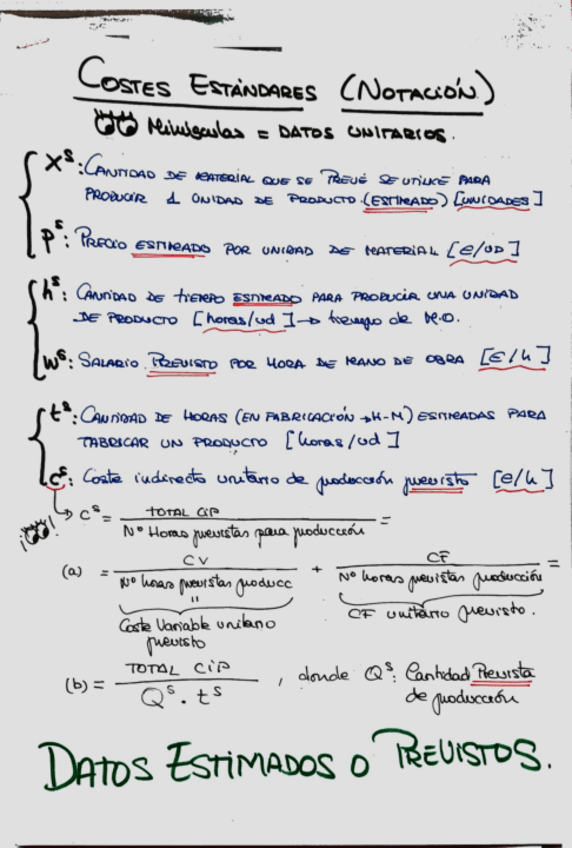 COSTES ESTÁNDARES (NOTACIÓN)
Minúsculas = DATOS UNITARIOS.
X^s: CANTIDAD DE MATERIAL QUE SE PREVÉ SE UTILICE PARA
PRODUCIR 1 UNIDAD DE PRODUCTO (ESTIMADO) [UNIDADES]
p^s: PRECIO ESTIMADO POR UNIDAD DE MATERIAL [€/UD]
h^s: CANTIDAD DE tIEMPO ESTIMADO PARA PRODUCIR UNA UNIDAD
DE PRODUCTO [horas/ud] → tiempo de M.O.
w^s: SALARIO PREVISTO POR HORA DE MANO DE OBRA [€/h]
t^s: CANTIDAD DE HORAS (EN FABRICACIÓN → H-M) ESTIMADAS PARA
FABRICAR UN PRODUCTO [horas/ud]
c^s: Coste indirecto unitario de producción previsto [€/h]
¡ ! → c^s = TOTAL CIP / Nº Horas previstas para producción =
(a) = CV / Nº horas previstas producc + CF / Nº horas previstas producción =
"
Coste Variable unitario previsto
CF unitario previsto.
(b) = TOTAL CIP / Q^s . t^s , donde Q^s: Cantidad Prevista
de producción
DATOS ESTIMADOS O PREVISTOS.